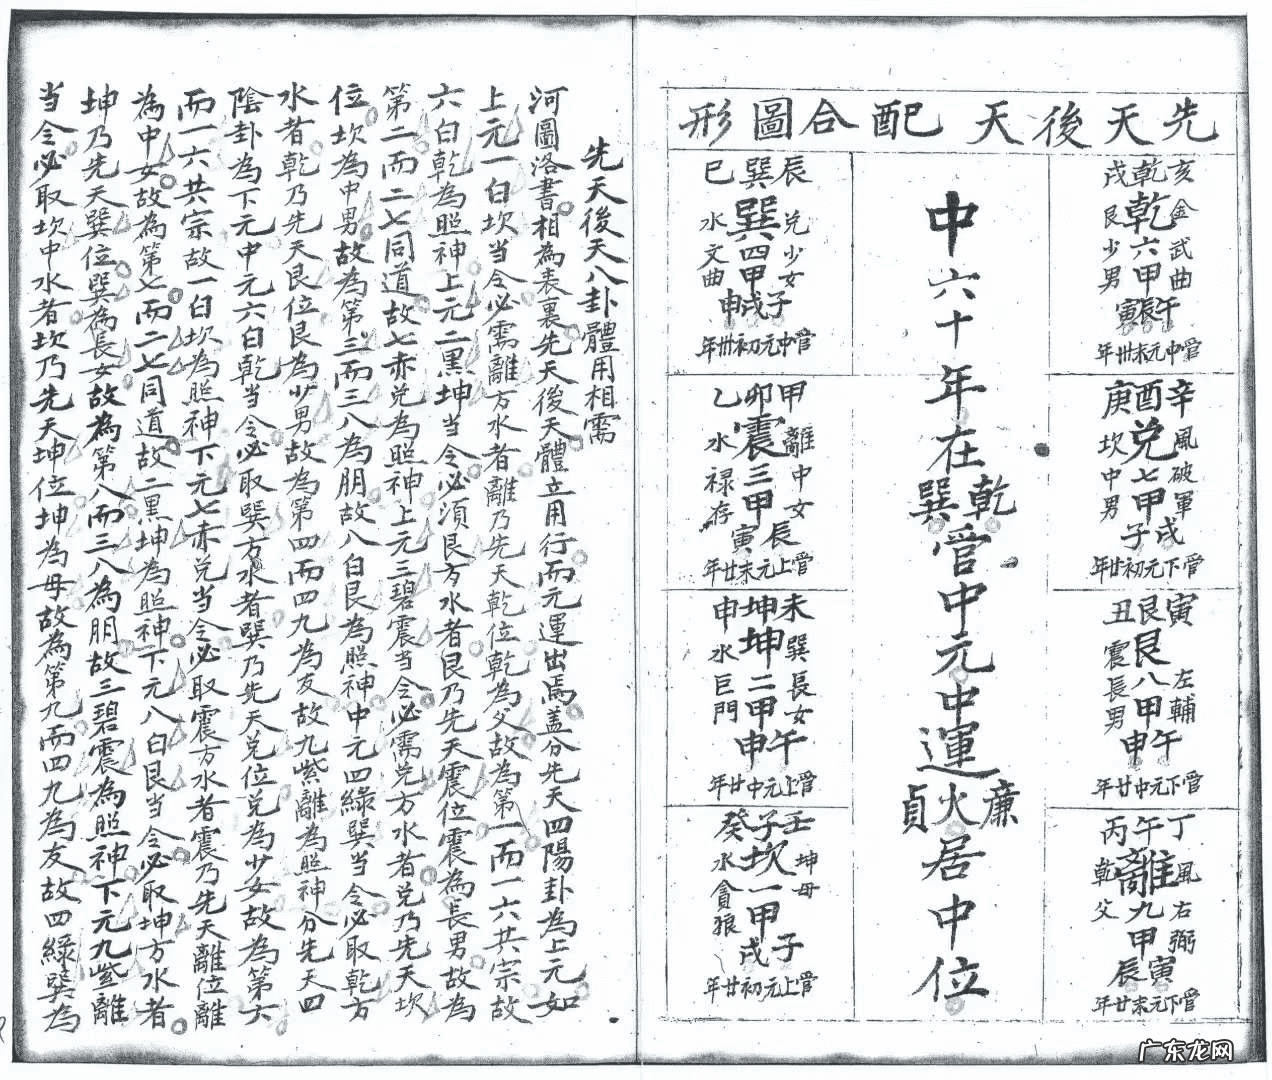 先天後天配合圖形
亥乾戌
金武曲
乾六甲午辰寅
艮少男
管中元末卅年
辛酉庚
風破軍
兌七甲戌子
坎中男
管下元初廿年
寅艮丑
左輔
艮八甲午申
震長男
管下元中廿年
丁午丙
風右弼
離九甲寅辰
乾父
管下元末廿年
中六十年在乾巽管中元中運廉火貞居中位
辰巽巳
兌少女
巽四甲子戌申
水文曲
管中元初卅年
甲卯乙
離中女
震三甲辰寅
水禄存
管上元末廿年
未坤申
巽長女
坤二甲午申
水巨門
管上元中廿年
壬子癸
坤母
坎一甲子戌
水貪狼
管上元初廿年
先天後天八卦體用相需
河圖洛書相為表裏先天後天體立用行而元運出焉蓋分先天四陽卦為上元如
上元一白坎当令必需離方水者離乃先天乾位乾為父故為第一而一六共宗故
六白乾為照神上元二黑坤当令必須艮方水者艮乃先天震位震為長男故為
第二而二七同道故七赤兌為照神上元三碧震当令必需兌方水者兌乃先天坎
位坎為中男故為第三而三八為朋故八白艮為照神中元四綠巽当令必取乾方
水者乾乃先天艮位艮為少男故為第四而四九為友故九紫離為照神分先天四
陰卦為下元中元六白乾当令必取巽方水者巽乃先天兌位兌為少女故為第六
而一六共宗故一白坎為照神下元七赤兌当令必取震方水者震乃先天離位離
為中女故為第七而二七同道故二黑坤為照神下元八白艮当令必取坤方水者
坤乃先天巽位巽為長女故為第八而三八為朋故三碧震為照神下元九紫離
当令必取坎中水者坎乃先天坤位坤為母故為第九而四九為友故四綠巽為
广东龙网